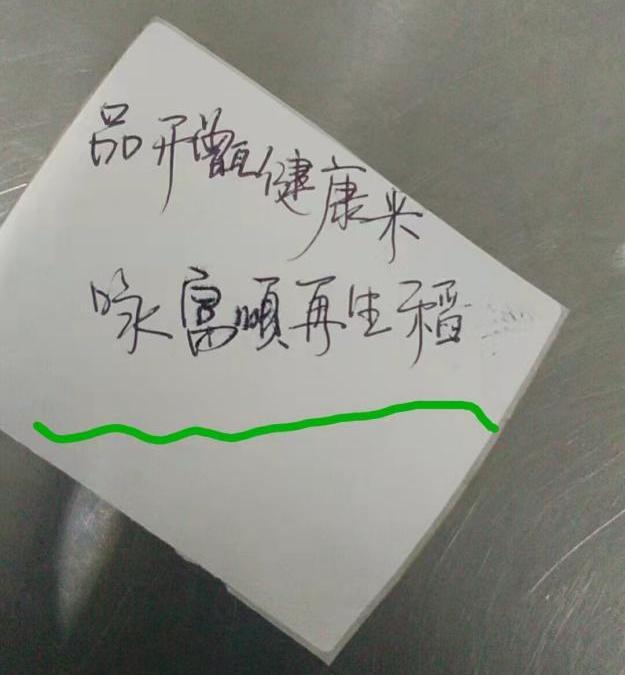 品开甑健康米
咏富順再生稻